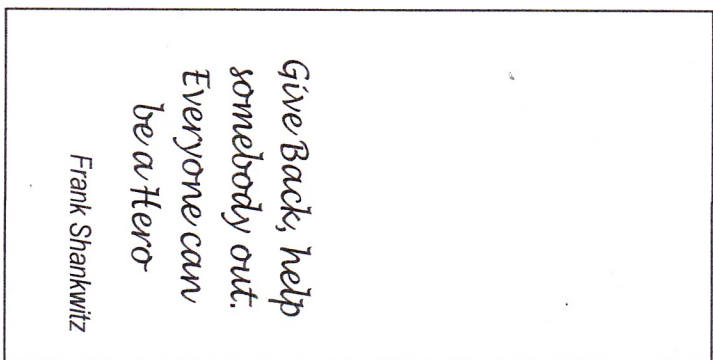 Give Back, help
somebody out.
Everyone can
be a Hero
Frank Shankwitz